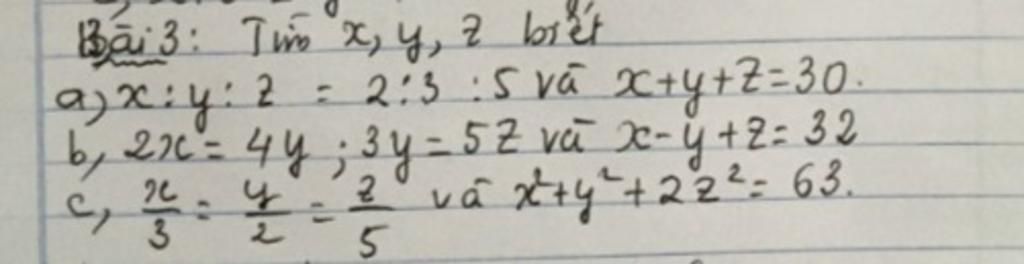 Bài 3: Tìm x, y, z biết
a, x : y : z = 2 : 3 : 5 và x + y + z = 30.
b, 2x = 4y ; 3y = 5z và x - y + z = 32
c, x/3 = y/2 = z/5 và x² + y² + 2z² = 63.